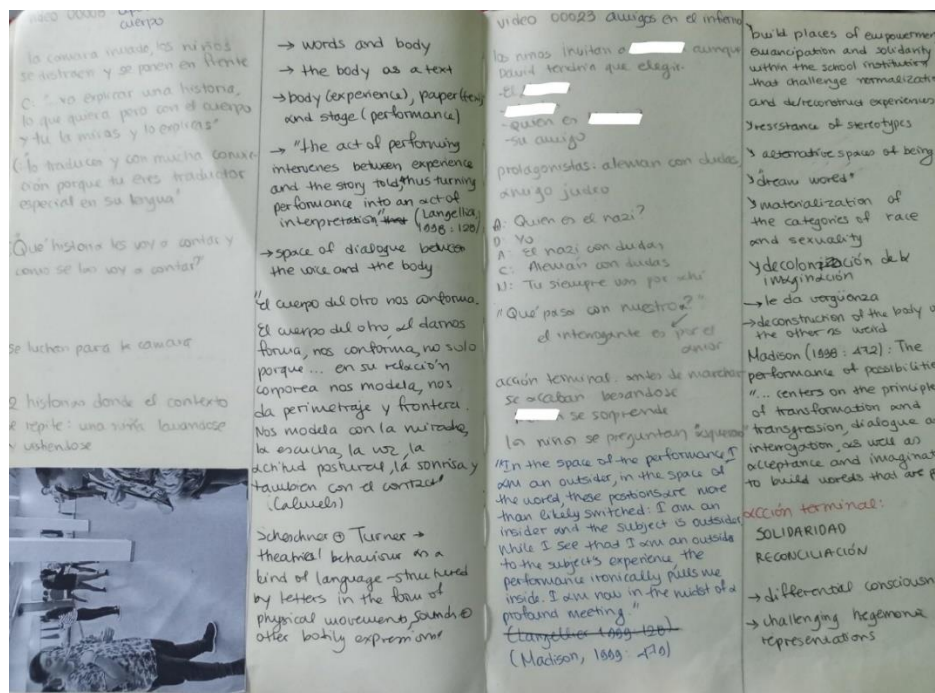 video 00008
cuerpo
la camara invade, los niños
se distraen y se ponen en frente
C: "va explicar una historia,
lo que quiera pero con el cuerpo
y tu la miras y lo explicas"
C: lo traduces y con mucha convic-
ción porque tu eres traductor
especial en su lengua"
"Qué historia les voy a contar y
como se las voy a contar?
se luchan para la camara
2 historias donde el contexto
se repite: una niña lavandose
y vistiendose
→ words and body
→ the body as a text
→ body (experience), paper (text)
and stage (performance)
→ "the act of performing
intervenes between experience
and the story told, thus turning
performance into an act of
interpretation" (Langellier,
1998: 128)
→ space of dialogue between
the voice and the body
"El cuerpo del otro nos conforma.
El cuerpo del otro al darnos
forma, nos conforma, no solo
porque... en su relación
corporea nos modela, nos
da perimetraje y frontera.
Nos modela con la mirada,
la escucha, la voz, la
actitud postural, la sonrisa y
tambien con el contacto"
(Calmels)
Schechner + Turner →
theatrical behaviour as a
kind of language structured
by letters in the form of
physical movements, sounds +
other bodily expressions
video 00023 amigos en el infierno
las niñas invitan a aunque
David tendria que elegir.
- El
- quien es
- su amigo
protagonistas: aleman con dudas,
amigo judio
A: Quien es el nazi?
D: Yo
A: El nazi con dudas
C: Aleman con dudas
N: Tu siempre vas por ahi
"Qué pasa con nuestro?"
el interrogante es por el
amor
acción terminal. antes de marchar
se acaban besandose
se sorprende
los niños se preguntan
"In the space of the performance I
am an outsider, in the space of
the word these positions are more
than likely switched: I am an
insider and the subject is outsider.
While I see that I am an outside
to the subject's experience, the
performance ironically pulls me
inside. I am now in the midst of a
profound meeting."
(Langellier 1999: 128)
(Madison, 1999: 470)
build places of empowerment
emancipation and solidarity
within the school institution
that challenge normalizati
and de/reconstruct experiences
resistance of stereotypes
alternative spaces of being
"dream word"
materialization of
the categories of race
and sexuality
decolonización de la
imaginación
→ le da vergüenza
→ deconstruction of the body of
the other as weird
Madison (1998: 472): The
performance of possibilities
"... centers on the principles
of transformation and
transgression, dialogue and
interrogation, as well as
acceptance and imaginat
to build words that are p
acción terminal:
SOLIDARIDAD
RECONCILIACIÓN
→ differential consciousn
→ challenging hegemonic
representations